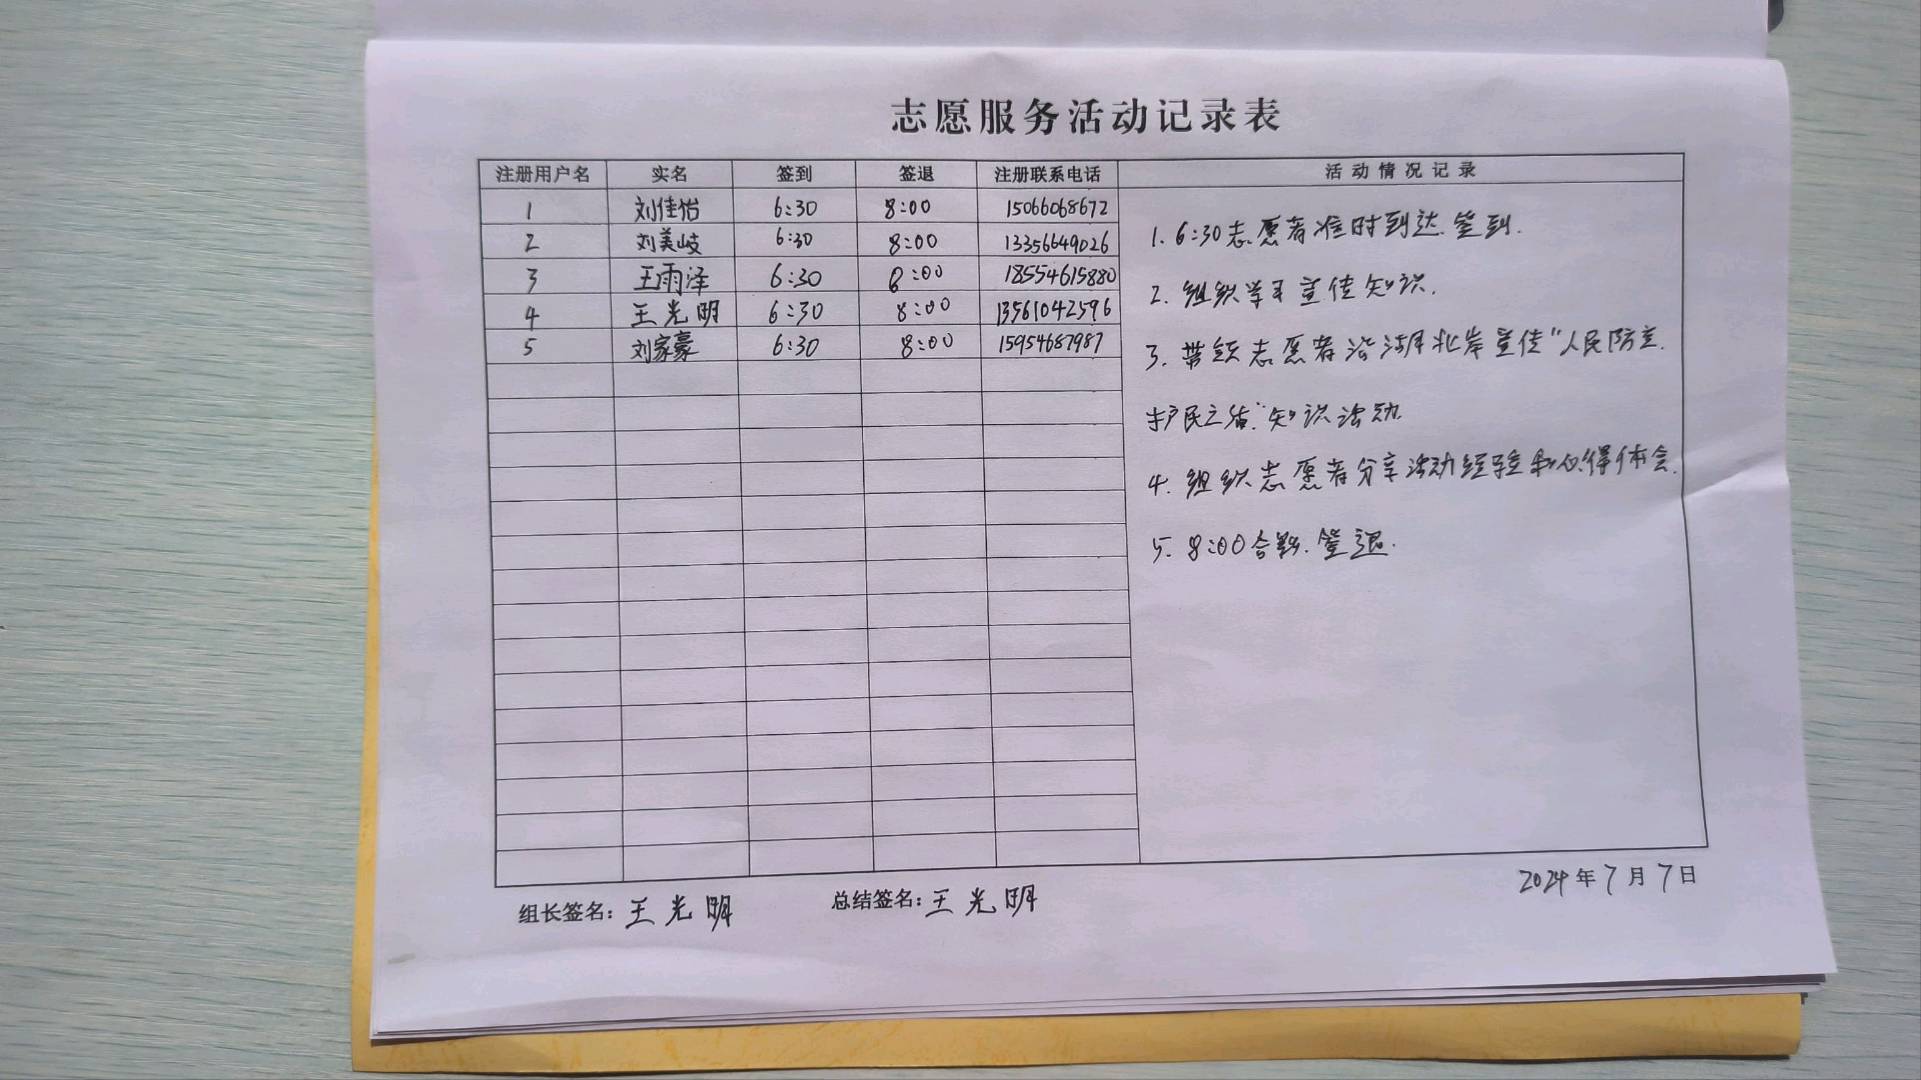 志愿服务活动记录表
注册用户名 实名 签到 签退 注册联系电话 活动情况记录
1 刘佳怡 6:30 8:00 15066068672
2 刘美岐 6:30 8:00 13356649026
3 王雨泽 6:30 8:00 18554615880
4 王光明 6:30 8:00 13561042596
5 刘家豪 6:30 8:00 15954687987
1. 6:30志愿者准时到达.签到.
2. 组织学习宣传知识.
3. 带领志愿者沿湖北岸宣传"人民防空.
护民之盾"知识活动.
4. 组织志愿者分享活动经验和心得体会.
5. 8:00合影.签退.
2024年7月7日
组长签名：王光明 总结签名：王光明